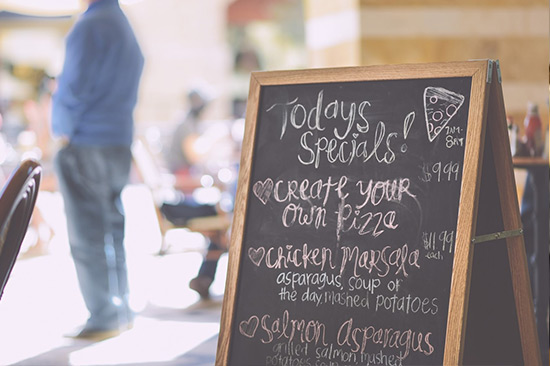 Today's
Specials!
2AM-
8AM
$9.99
Create Your
Own Pizza
$11.99
each
Chicken Marsala
asparagus soup of
the day mashed potatoes
Salmon Asparagus
grilled salmon, mushed
potatoes